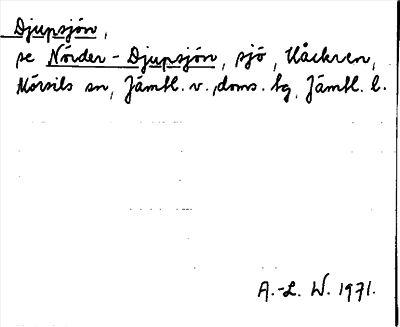 Djupsjön,
se Nörder-Djupsjön, sjö, Kåckren,
Mörsils sn, Jämtl. v. doms. tg, Jämtl. l.
A.-L. W. 1971.